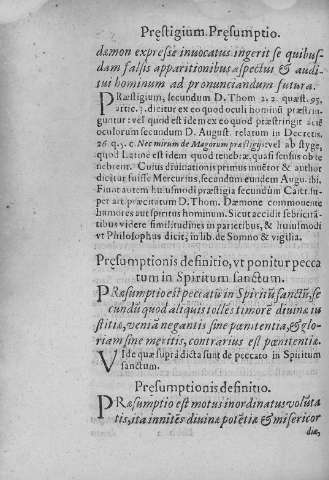 Pręstigium. Pręsumptio.
dæmon expresse inuocatus ingerit se quibus-
dam falsis apparitionibus aspectui & audi-
tui hominum ad pronunciandum futura.
PRæstigium, secundum D. Thom. 2. 2. quæst. 95.
artic. 3. dicitur ex eo quod oculi hominũ præstrin-
guntur: vel quod est idem ex eo quod præstringit aciẽ
oculorum secundum D. August. relatum in Decretis,
26. q. 5. c. Nec mirum de Magorum præstigijs: vel ab styge,
quod Latine est idem quod tenebræ, quasi sensus obte
nebrent. Cuius diuinationis primus inuẽtor & author
dicitur fuisse Mercurius, secundum eundem Augu. ibi.
Fiunt autem huiusmodi præstigia secundũm Caiet. su-
per art. præcitatum D. Thom. Dæmone commouente
humores aut spiritus hominum. Sicut accidit febricitã-
tibus videre similitudines in parietibus, & huiusmodi
vt Philosophus dicit, in lib. de Somno & vigilia.
Pręsumptionis definitio, vt ponitur pecca
tum in Spiritum sanctum.
PRæsumptio est peccatũ in Spiritũ sanctũ, se
cundũ quod aliquis tollẽs timorẽ diuinæ iu
stitiæ, veniã negantis sine pœnitentia, & glo-
riam sine meritis, contrarius est pœnitentiæ.
VIde quæ suprà dicta sunt de peccato in Spiritum
sanctum.
Pręsumptionis definitio.
PRæsumptio est motus inordinatus volũta
tis, ita innitẽs diuinæ potẽtiæ & misericor
diæ,